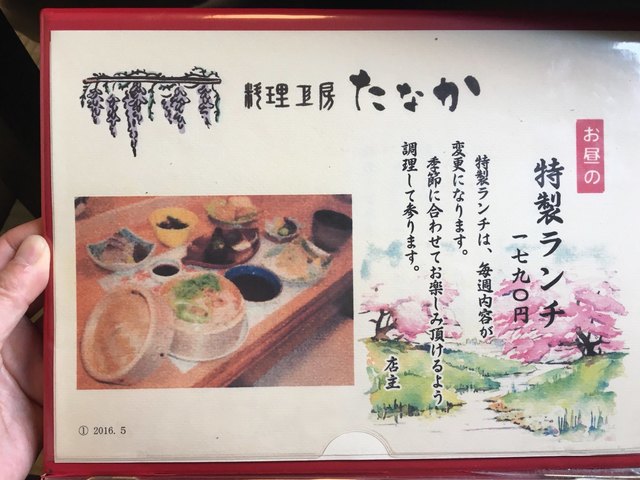 料理工房 たなか
お昼の
特製ランチ
一七九〇円
特製ランチは、毎週内容が
変更になります。
季節に合わせてお楽しみ頂けるよう
調理して参ります。
店主
① 2016. 5